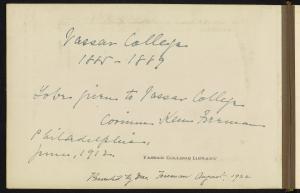 Vassar College
1885 - 1889
To be given to Vassar College
Corinne Freeman
Philadelphia,
June, 1912.
VASSAR COLLEGE LIBRARY
Presented by Mrs. Freeman August, 1922